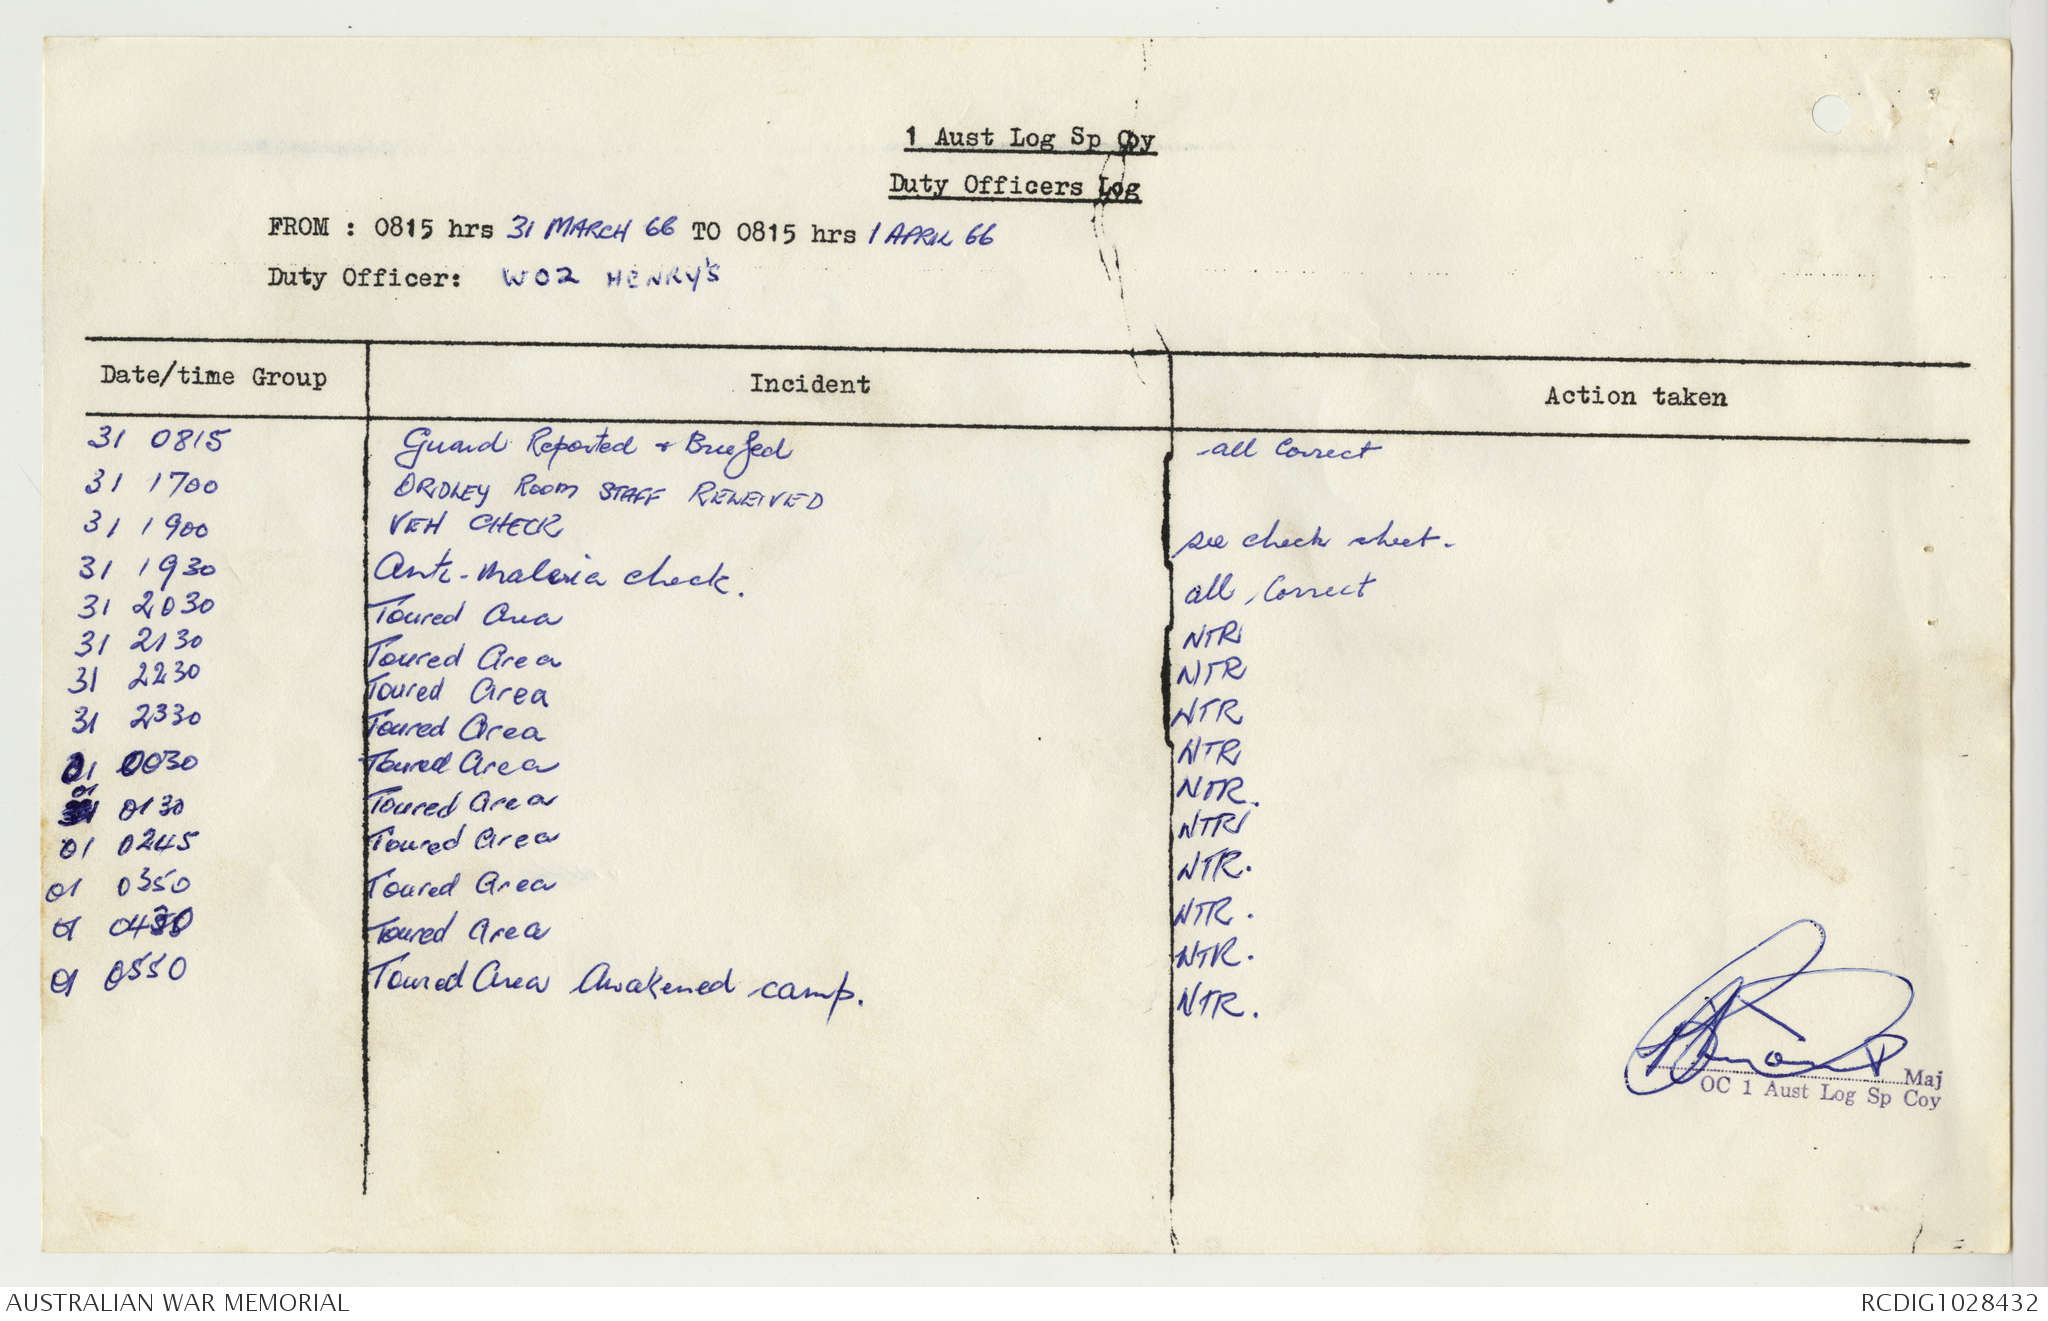 1 Aust Log Sp Coy
Duty Officers Log
FROM : 0815 hrs 31 MARCH 66 TO 0815 hrs 1 APRIL 66
Duty Officer: WO2 HENRY'S
Date/time Group Incident Action taken
31 0815 Guard Reported + Briefed all Correct
31 1700 ROOM STAFF
31 1900 VEH CHECK see check sheet.
31 1930 Anti-Malaria check. all Correct
31 2030 Toured Area NTR
31 2130 Toured Area NTR
31 2230 Toured Area NTR
31 2330 Toured Area NTR
01 0030 Toured Area NTR.
01 0130 Toured Area NTR
01 0245 Toured Area NTR.
01 0350 Toured Area NTR.
01 Toured Area NTR.
01 0550 Toured Area Awakened camp. NTR.
Maj
OC 1 Aust Log Sp Coy
AUSTRALIAN WAR MEMORIAL RCDIG1028432